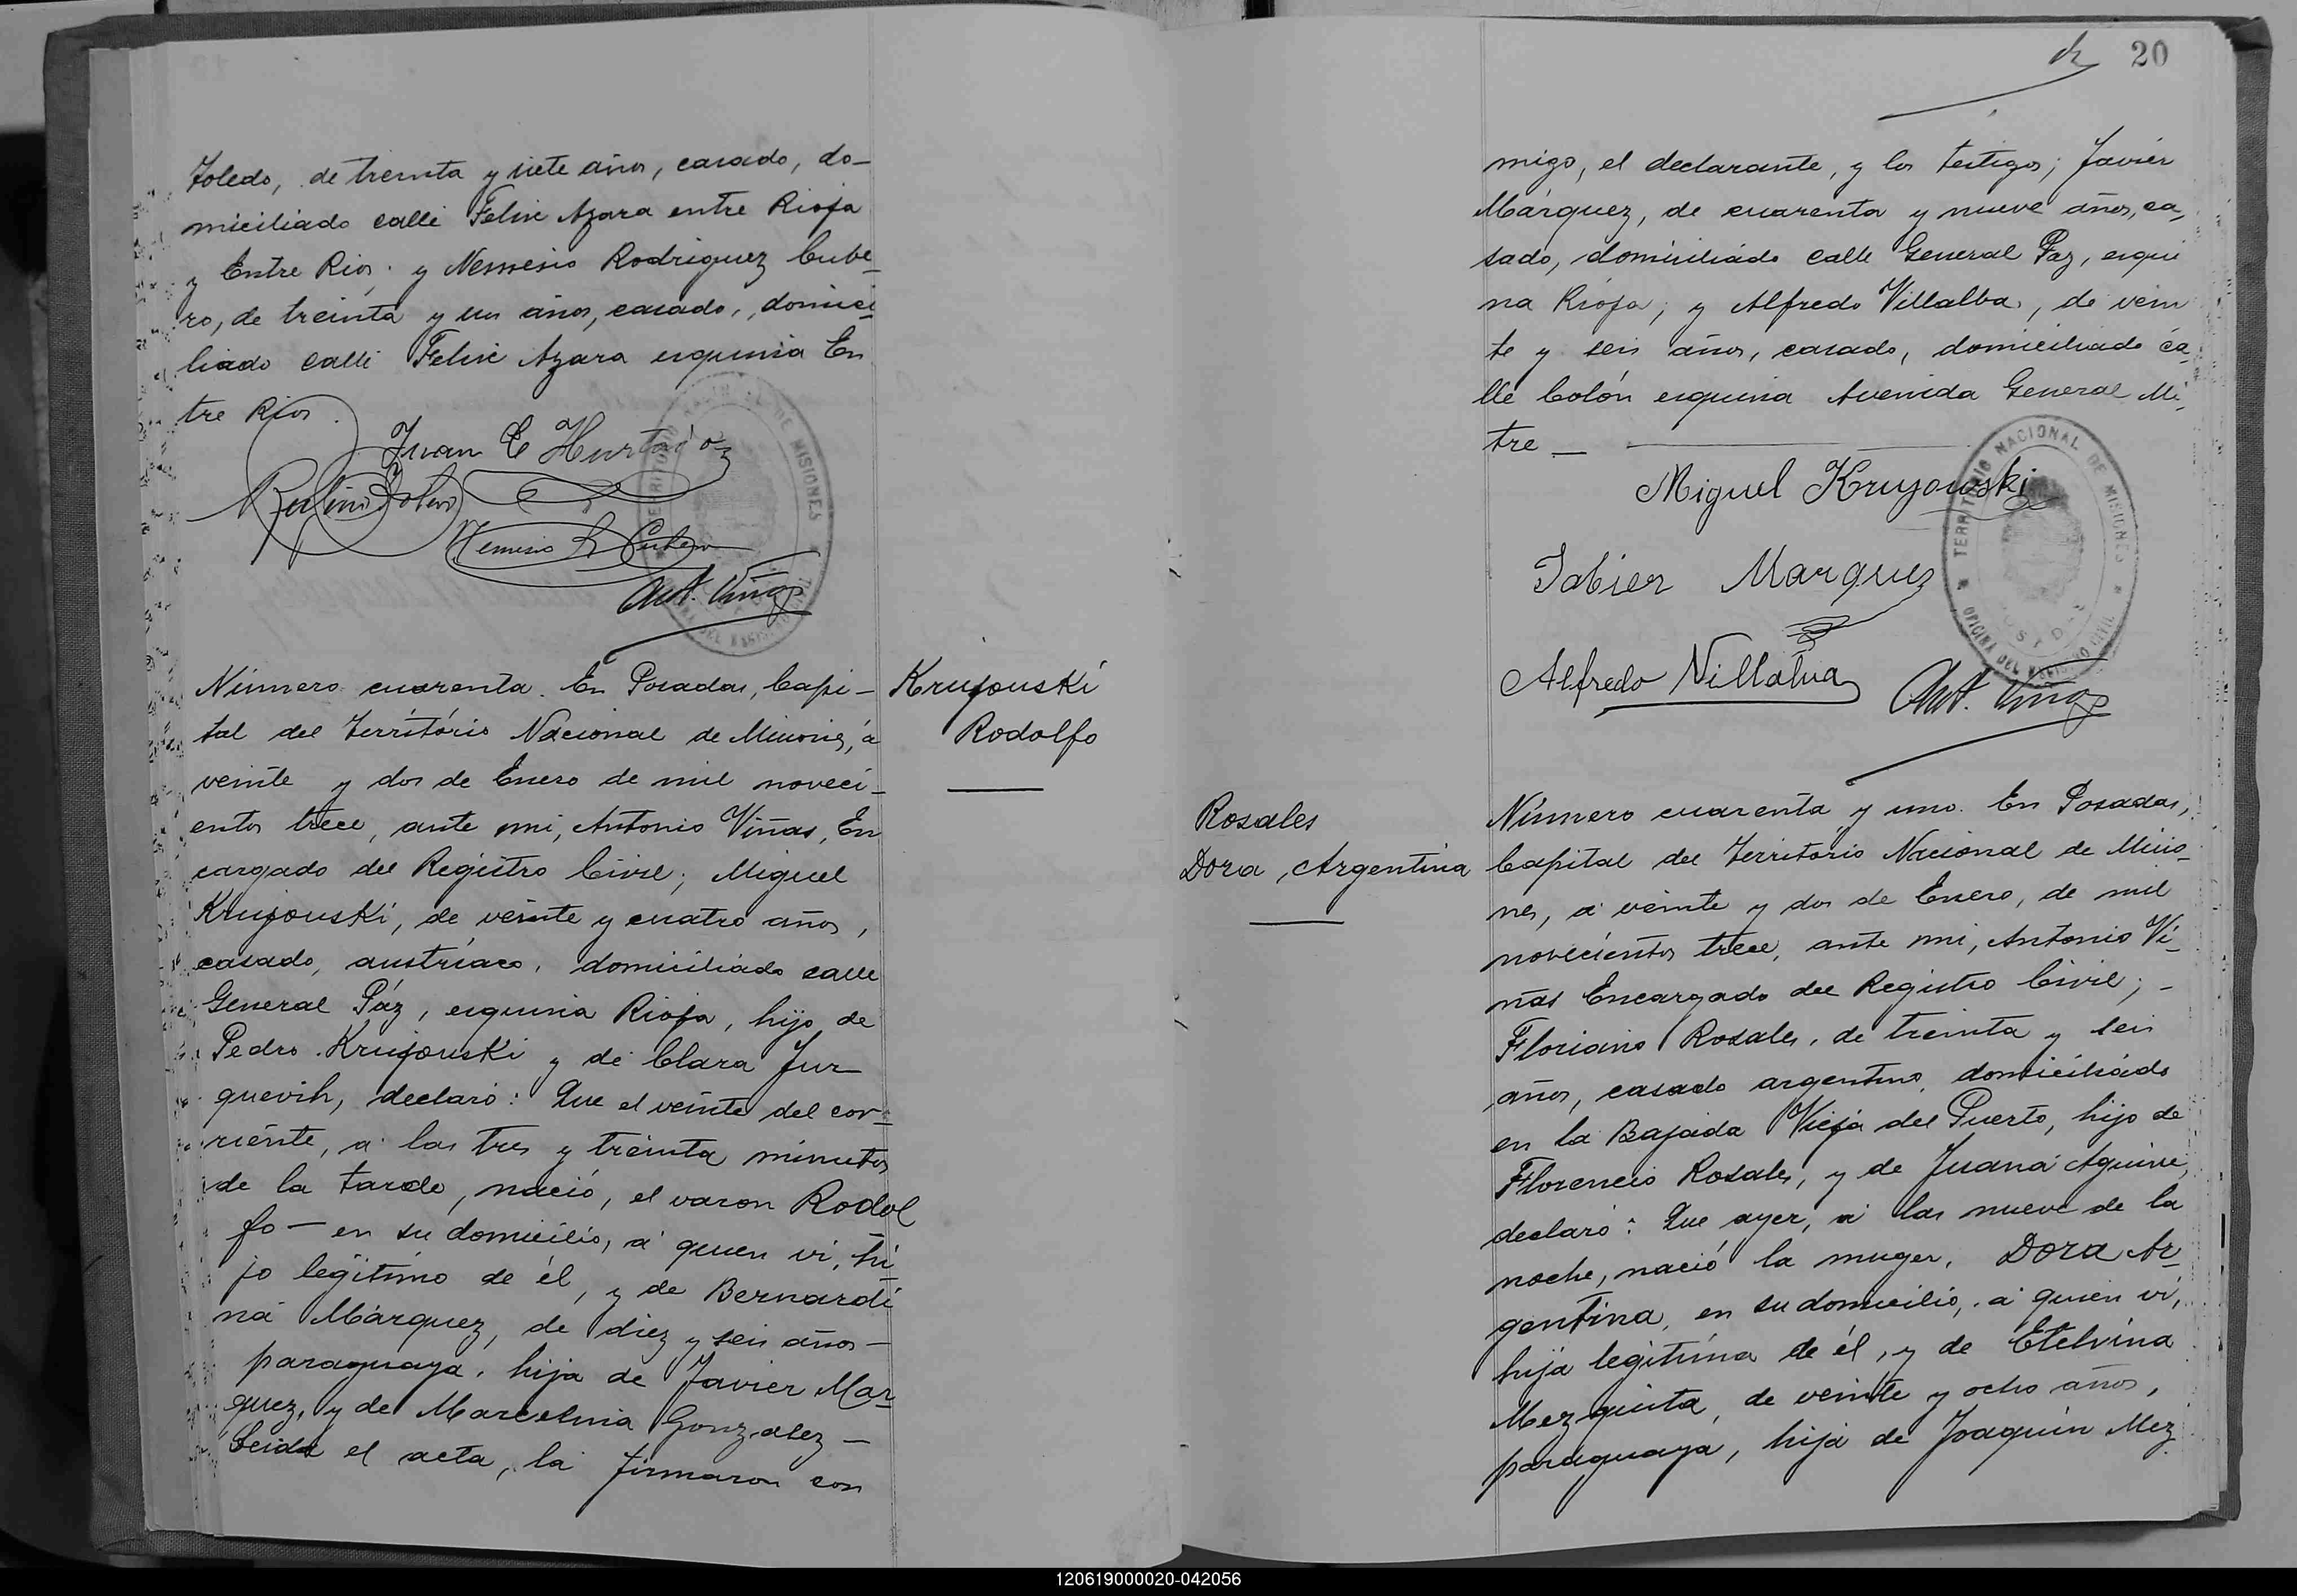 Toledo, de treinta y siete años, casado, do-
miciliado calle Felix Azara entre Rioja
y Entre Rios; y Nemesio Rodriguez Cube-
ro, de treinta y un años, casado, domici-
liado calle Felix Azara esquina En
tre Rios.
Juan C Hurtado
Rufino Toledo
Nemesio R Cubero
Ant. Viñas
Número cuarenta. En Posadas, Capi-
tal del Território Nacional de Misiones, á
veinte y dos de Enero de mil noveci-
entos trece, ante mi, Antonio Viñas, En
cargado del Registro Civil; Miguel
Krujouski, de veinte y cuatro años,
casado, austríaco, domiciliado calle
General Páz, esquina Rioja, hijo de
Pedro Krujouski y de Clara Jur
quevih, declaró: Que el veinte del cor-
riente, a las tres y treinta minutos
de la tarde, nació, el varon Rodol
fo — en su domicilio, á quien vi, hi
jo legítimo de él, y de Bernardi
na Márquez, de diez y seis años —
paraguaya, hija de Javier Mar
quez, y de Marcelina Gonzalez —
Leida el acta, la firmaron con
Krujouski
Rodolfo
20
migo, el declarante, y los testigos; Javier
Márquez, de cuarenta y nueve años, ca-
sado, domiciliado calle General Paz, esqui
na Rioja; y Alfredo Villalba, de vein
te y seis años, casado, domiciliado ca-
lle Colón esquina Avenida General Mi-
tre —
Miguel Kruyouski
Jabier Marquez
Alfredo Villalva
Ant. Viñas
TERRITORIO NACIONAL DE MISIONES
OFICINA DEL REGISTRO CIVIL
Rosales
Dora, Argentina
Número cuarenta y uno. En Posadas,
Capital del Territorio Nacional de Misio-
nes, á veinte y dos de Enero, de mil
novecientos trece, ante mi, Antonio Vi-
ñas Encargado del Registro Civil; -
Floriano Rosales, de treinta y seis
años, casado argentino, domiciliádo
en la Bajada Vieja del Puerto, hijo de
Florencio Rosales, y de Juana Aguirre,
declaró: Que ayer, á las nueve de la
noche, nació la muger, Dora Ar
gentina, en su domicilio, á quien vi,
hija legítima de él, y de Etelvina
Mezquita, de veinte y ocho años,
paraguaya, hija de Joaquín Mez
120619000020-042056